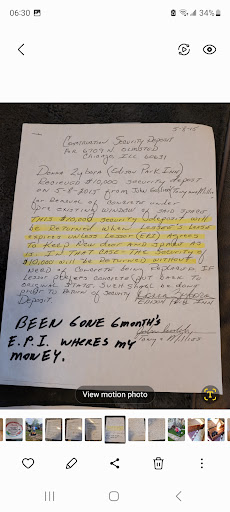 06:30
34%
5-8-15
Construction Security Deposit
For 6707 N. Olmsted
Chicago Ill 60631
Donna Zybara (Edison Park Inn)
Recieved $10,000 security deposit
on 5-8-2015 from John
for removal of concrete under
pre existing window of said space
THIS $10,000 security deposit will
be returned when Lessee's lease
expires unless Lessor (EPI) agrees
to keep new door and space as
is. In that case - the security of
$10,000 will be returned without
need of concrete being replaced. If
Lessor prefers concrete put back to
original state. Such shall be done
prior to return of security
Deposit.
EDISON PARK INN
Tony
BEEN GONE 6 month's
E.P.I. WHERES MY
MONEY.
View motion photo